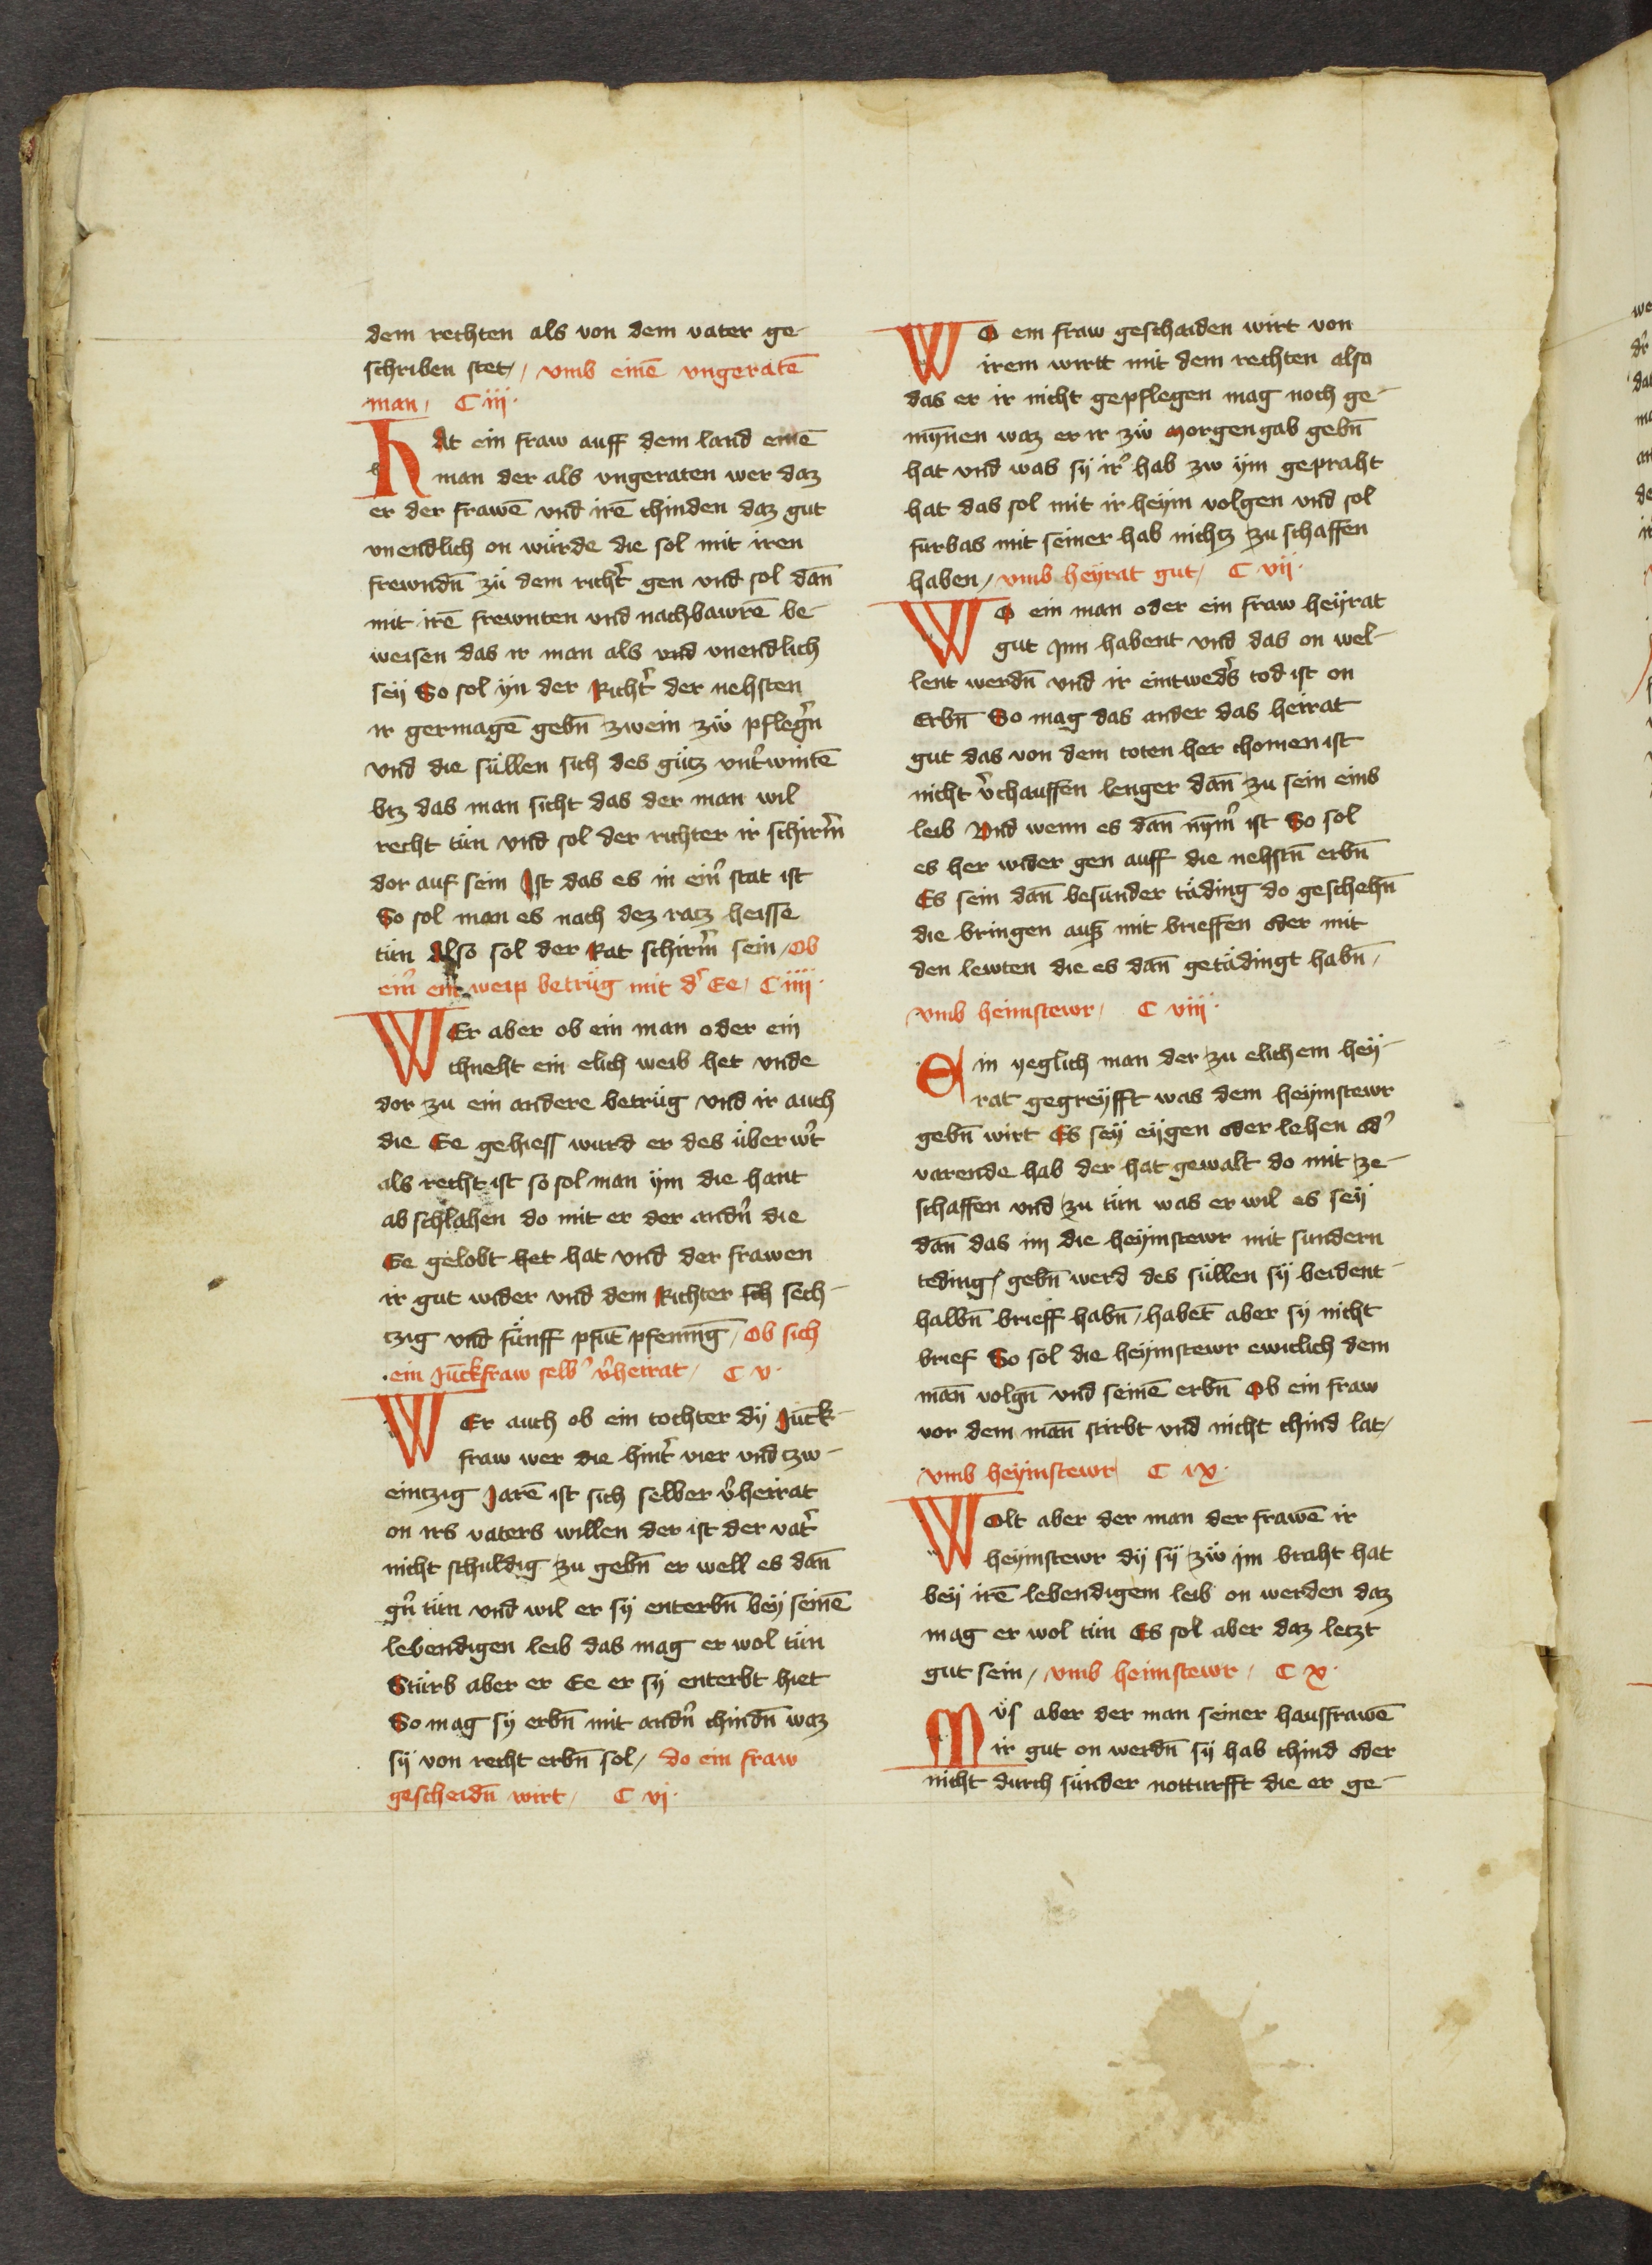 dem rechten als von dem vater ge-
schriben stet, vmb einē vngeratē
man, C iij.
hAt ein fraw auff dem land einē
man der als vngeraten wer daz
er der frawē vnd irē chinden daz gut
vnendlich on würde die sol mit iren
frewndn̄ zü dem richt̾ gen vnd sol dan̄
mit irē frewnten vnd nachbawrē be-
weisen das ir man als vnd vnendlich
seÿ So sol ÿn der Richt̾ der nehsten
ir germagē gebn̄ zwein zẅ pfleg̾n
vnd die süllen sich des gütz vnt̾wintē
btz das man sicht das der man wil
recht tün vnd sol der richter ir schirm̾
dor auf sein Ist das es in ein̾ stat ist
So sol man es nach dez ratz heisse
tün Also sol der Rat schirm̾ sein, Ob
ein̾ ein weip betrüg mit d̾ Ee, C iiij.
WEr aber ob ein man oder ein
chneht ein elich weib het vnde
dor zu ein andere betrüg vnd ir auch
die Ee gehiess wurd er des über w̾t
als recht ist so sol man ÿm die hant
ab schlahen do mit er der andn̾ die
Ee gelobt het hat vnd der frawen
ir gut wider vnd dem Richter sch sech-
tzig vnd fünff pfūt pfenin̄g, Ob sich
ein Jūckfraw selb̾ v̾heirat, C v.
WEr auch ob ein tochter dÿ Jūck-
fraw wer die hint̾ vier vnd tzw-
eintzig Jarē ist sich selber v̾heirat
on irs vaters willen der ist der vat̾
nicht schuldig zu gebn̄ er well es dan̄
gn̾ tün vnd wil er sÿ enterbn̄ beÿ seinē
lebendigen leib das mag er wol tün
Stürb aber er Ee er sÿ enterbt hiet
So mag sÿ erbn̄ mit andn̾ chindn̄ waz
sÿ von recht erbn̄ sol, do ein fraw
gescheidn̄ wirt, C vj.
WO ein fraw geschaiden wirt von
irem wirtt mit dem rechten also
das er ir nicht gepflegen mag noch ge-
mÿn̄en waz er ir zẅ Morgengab gebn̄
hat vnd was sÿ ir̾ hab zw ÿm gepraht
hat das sol mit ir heÿm volgen vnd sol
fürbas mit seiner hab nichtz zu schaffen
haben, vmb heÿrat gut, C vij.
WO ein man oder ein fraw heÿrat
gut Jnn habent vnd das on wel-
lent werdn̄ vnd ir eintwed̾s tod ist on
Erbn̄ So mag das ander das heirat
gut das von dem toten her chomen ist
nicht v̾chauffen lenger dan̄ zu sein eins
leib Vnd wenn es dan̄ nÿm̾ ist So sol
es her wider gen auff die nehstn̄ erbn̄
Es sein dan̄ besunder täding do geschehn̄
die bringen auß mit brieffen oder mit
den lewten die es dan̄ getädingt habn̄,
vmb heimstewr, C viij.
Ein yeglich man der zu elichem heÿ-
rat gegreÿfft was dem heÿmstewr
gebn̄ wirt Es seÿ eÿgen oder lehen od̾
varende hab der hat gewalt do mit ze-
schaffen vnd zu tün was er wil es seÿ
dan̄ das im die heÿmstewr mit sundern
teding, gebn̄ werd des süllen sÿ beident-
halbn̄ brieff habn̄, habēt aber sÿ nicht
brief So sol die heÿmstewr ewiclich dem
man̄ volgn̄ vnd seinē erbn̄ Ob ein fraw
vor dem man̄ stirbt vnd nicht chind lat,
vmb heÿmstewr C ix.
WOlt aber der man der frawē ir
heÿmstewr dÿ sÿ zẅ jm braht hat
beÿ irē lebendigem leib on werden daz
mag er wol tün Es sol aber daz letzt
gut sein, vmb heimstewr, C x.
Müs aber der man seiner hausfrawē
ir gut on werdn̄ sÿ hab chind oder
nicht durch sünder notturfft die er ge-